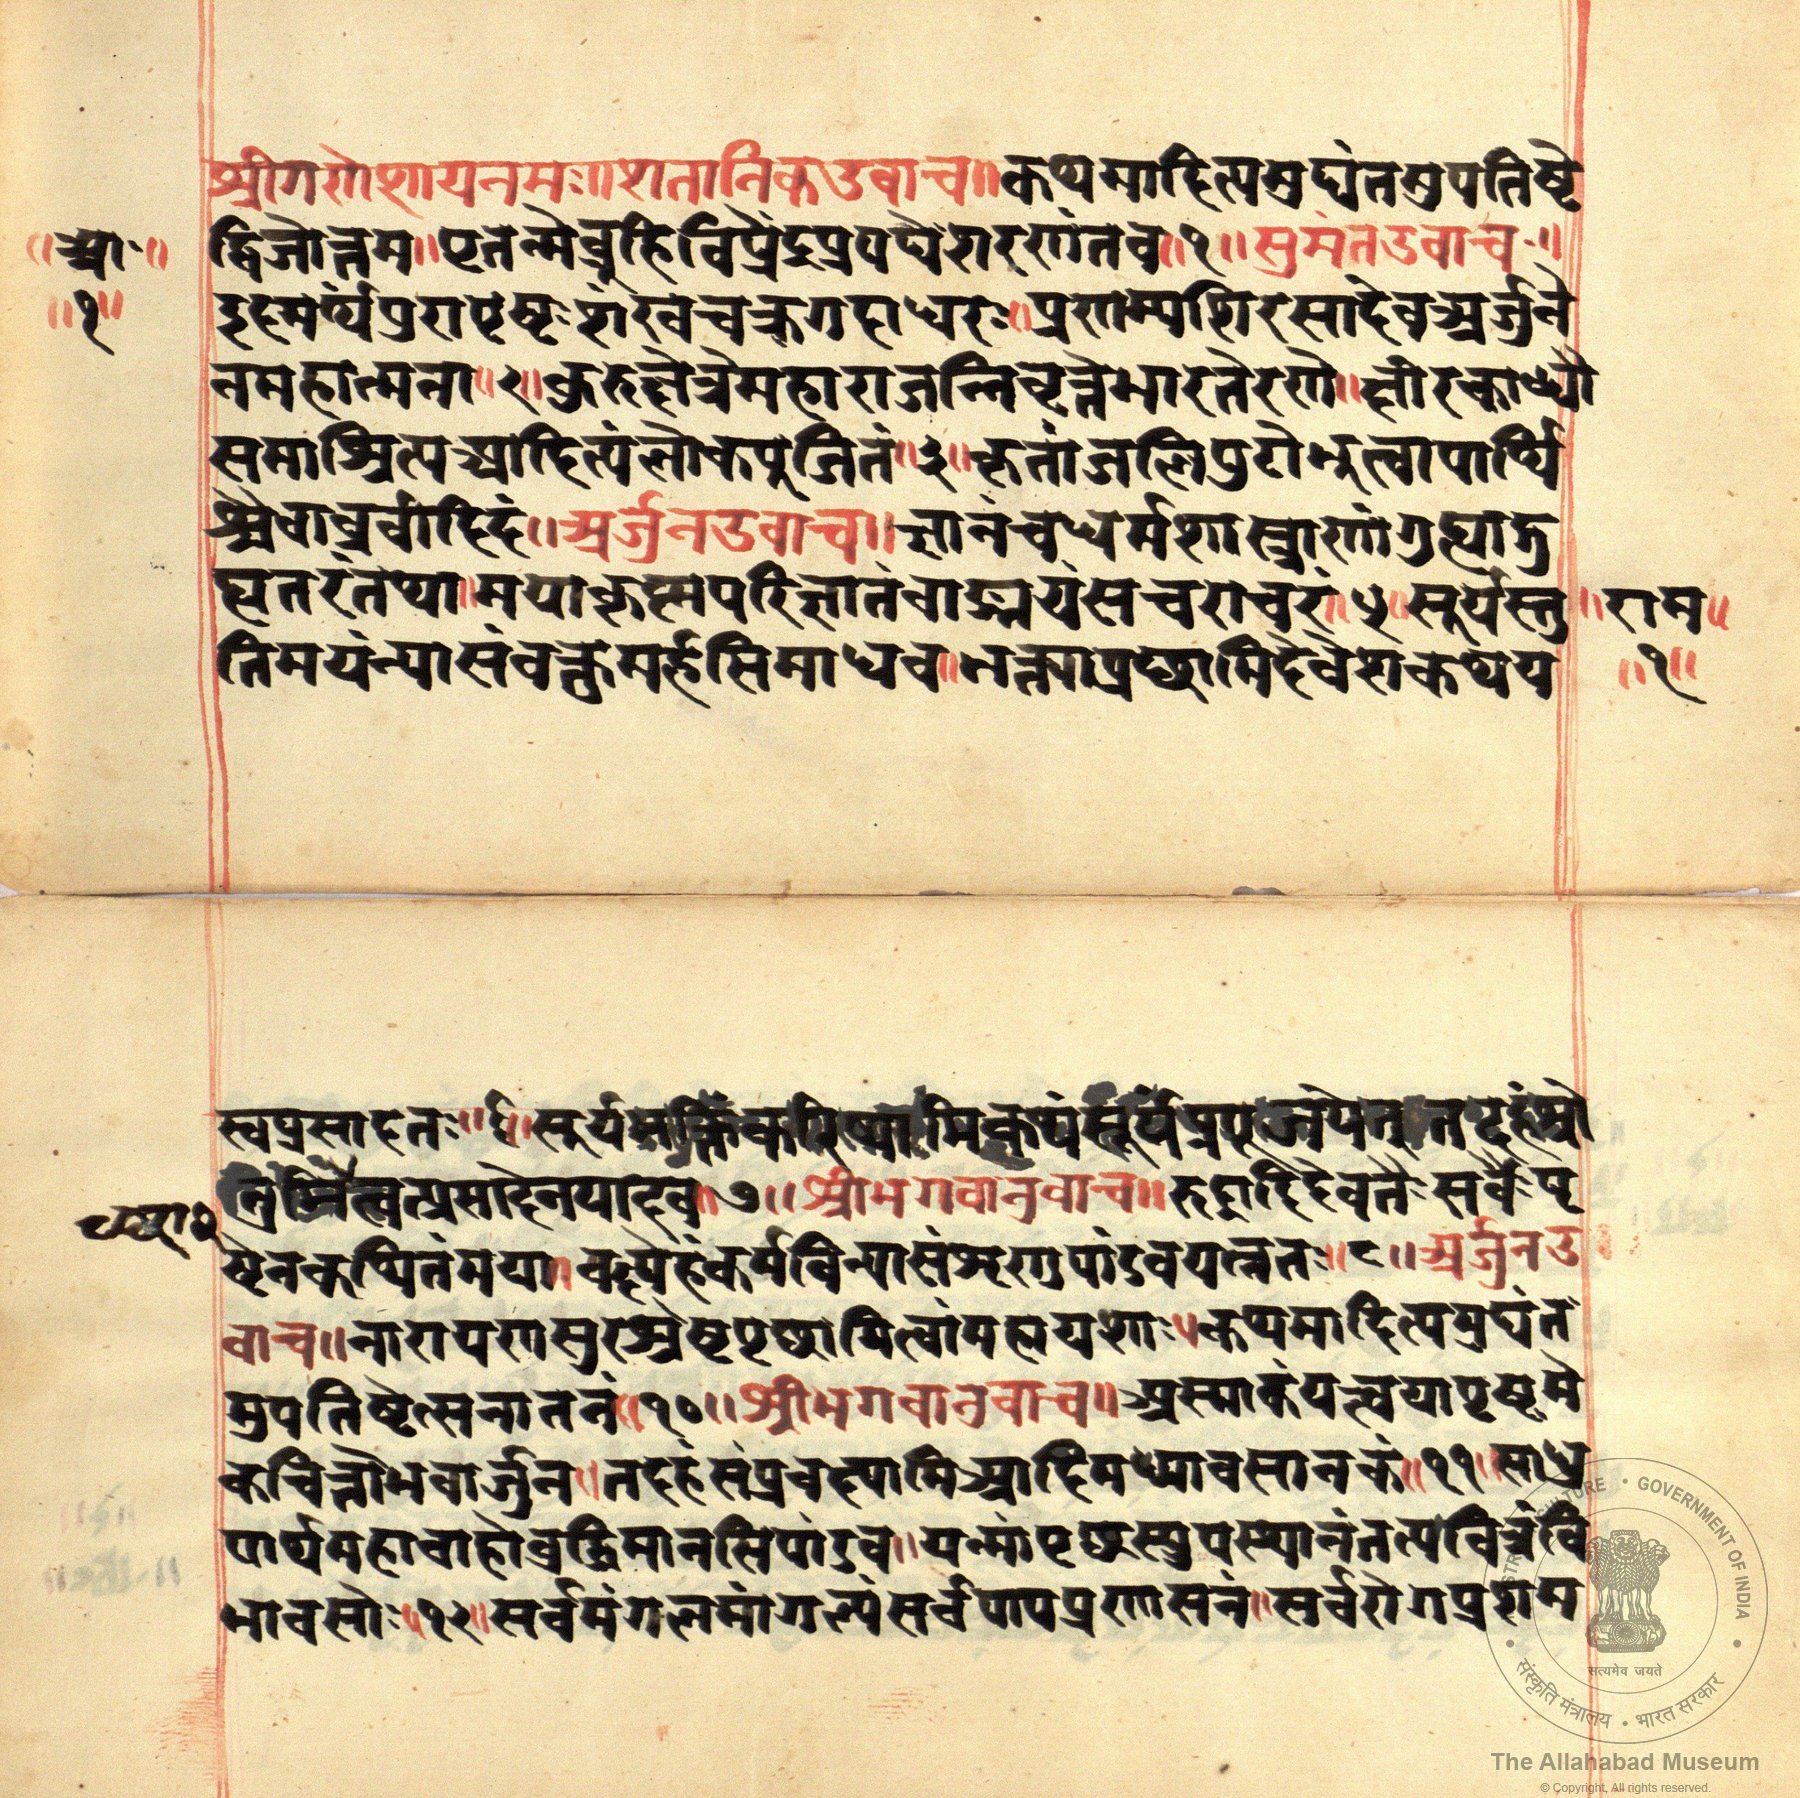 श्रीगणेशायनमः॥शतानिकउवाच॥कथमादित्यमुद्यंतमुपतिष्टे
॥आ॰॥
द्विजोत्तम॥एतन्मेब्रुहिविप्रेंद्रप्रपद्येशरणंतव॥१॥सुमंतउवाच॥
॥१॥
इदमर्थंपुरापृष्टःशंखचक्रगदाधरः॥प्रणम्यशिरसादेवअर्जुने
नमहात्मना॥२॥कुरुक्षेत्रेमहाराजन्निवृत्तेभारतेरणे॥
समाश्रित्यआदित्यंलोकपुजितं॥३॥कृतांजलिपुटोभुत्वापार्थि
श्चैवाब्रवीदिदं॥अर्जुनउवाच॥ज्ञानंचधर्मशास्त्राणांगुह्याद्गु
ह्यतरंतथा॥मयाकृष्णपरिज्ञातंवाङ्मयंसचराचरं॥५॥सूर्यस्तु
॥राम॥
तिमयंन्यासंवक्तुमर्हसिमाधव॥भक्त्याप्रछामिदेवेशकथय
॥१॥
स्वप्रसादतः॥६॥सुर्यभक्तिंकरिष्यामिकथंसूर्यंप्रपूजयेत्॥तदहंश्रो
तुमिछेत्वत्प्रसादेनयादव॥७॥श्रीभगवानुवाच॥रुद्रादिदेवतैःसर्वैःपृ
ष्टेनकथितंमया॥वक्ष्येहंकर्मविन्यासंश्रृणुपांडवयत्नतः॥८॥अर्जुनउ
वाच॥नारायणसुरश्रेष्टपृछामित्वांमहायशाः॥कथमादित्यमुद्यंतं
मुपतिष्टेत्सनातनं॥१०॥श्रीभगवानुवाच॥अस्माकंयत्त्वयापृष्टमे
कचित्तोभवार्जुन॥तदहंसंप्रवक्ष्यामिआदिमध्यावसानकं॥११॥साधु
पार्थमहाबाहोबुद्धिमानसिपांडव॥यन्मांपृछस्युपस्थानंतत्पवित्रंवि
भावसोः॥१२॥सर्वमंगलमांगल्यंसर्वपापप्रणासनं॥सर्वरोगप्रशम
MINISTRY OF CULTURE • GOVERNMENT OF INDIA
सत्यमेव जयते
संस्कृति मंत्रालय • भारत सरकार
The Allahabad Museum
© Copyright, All rights reserved.